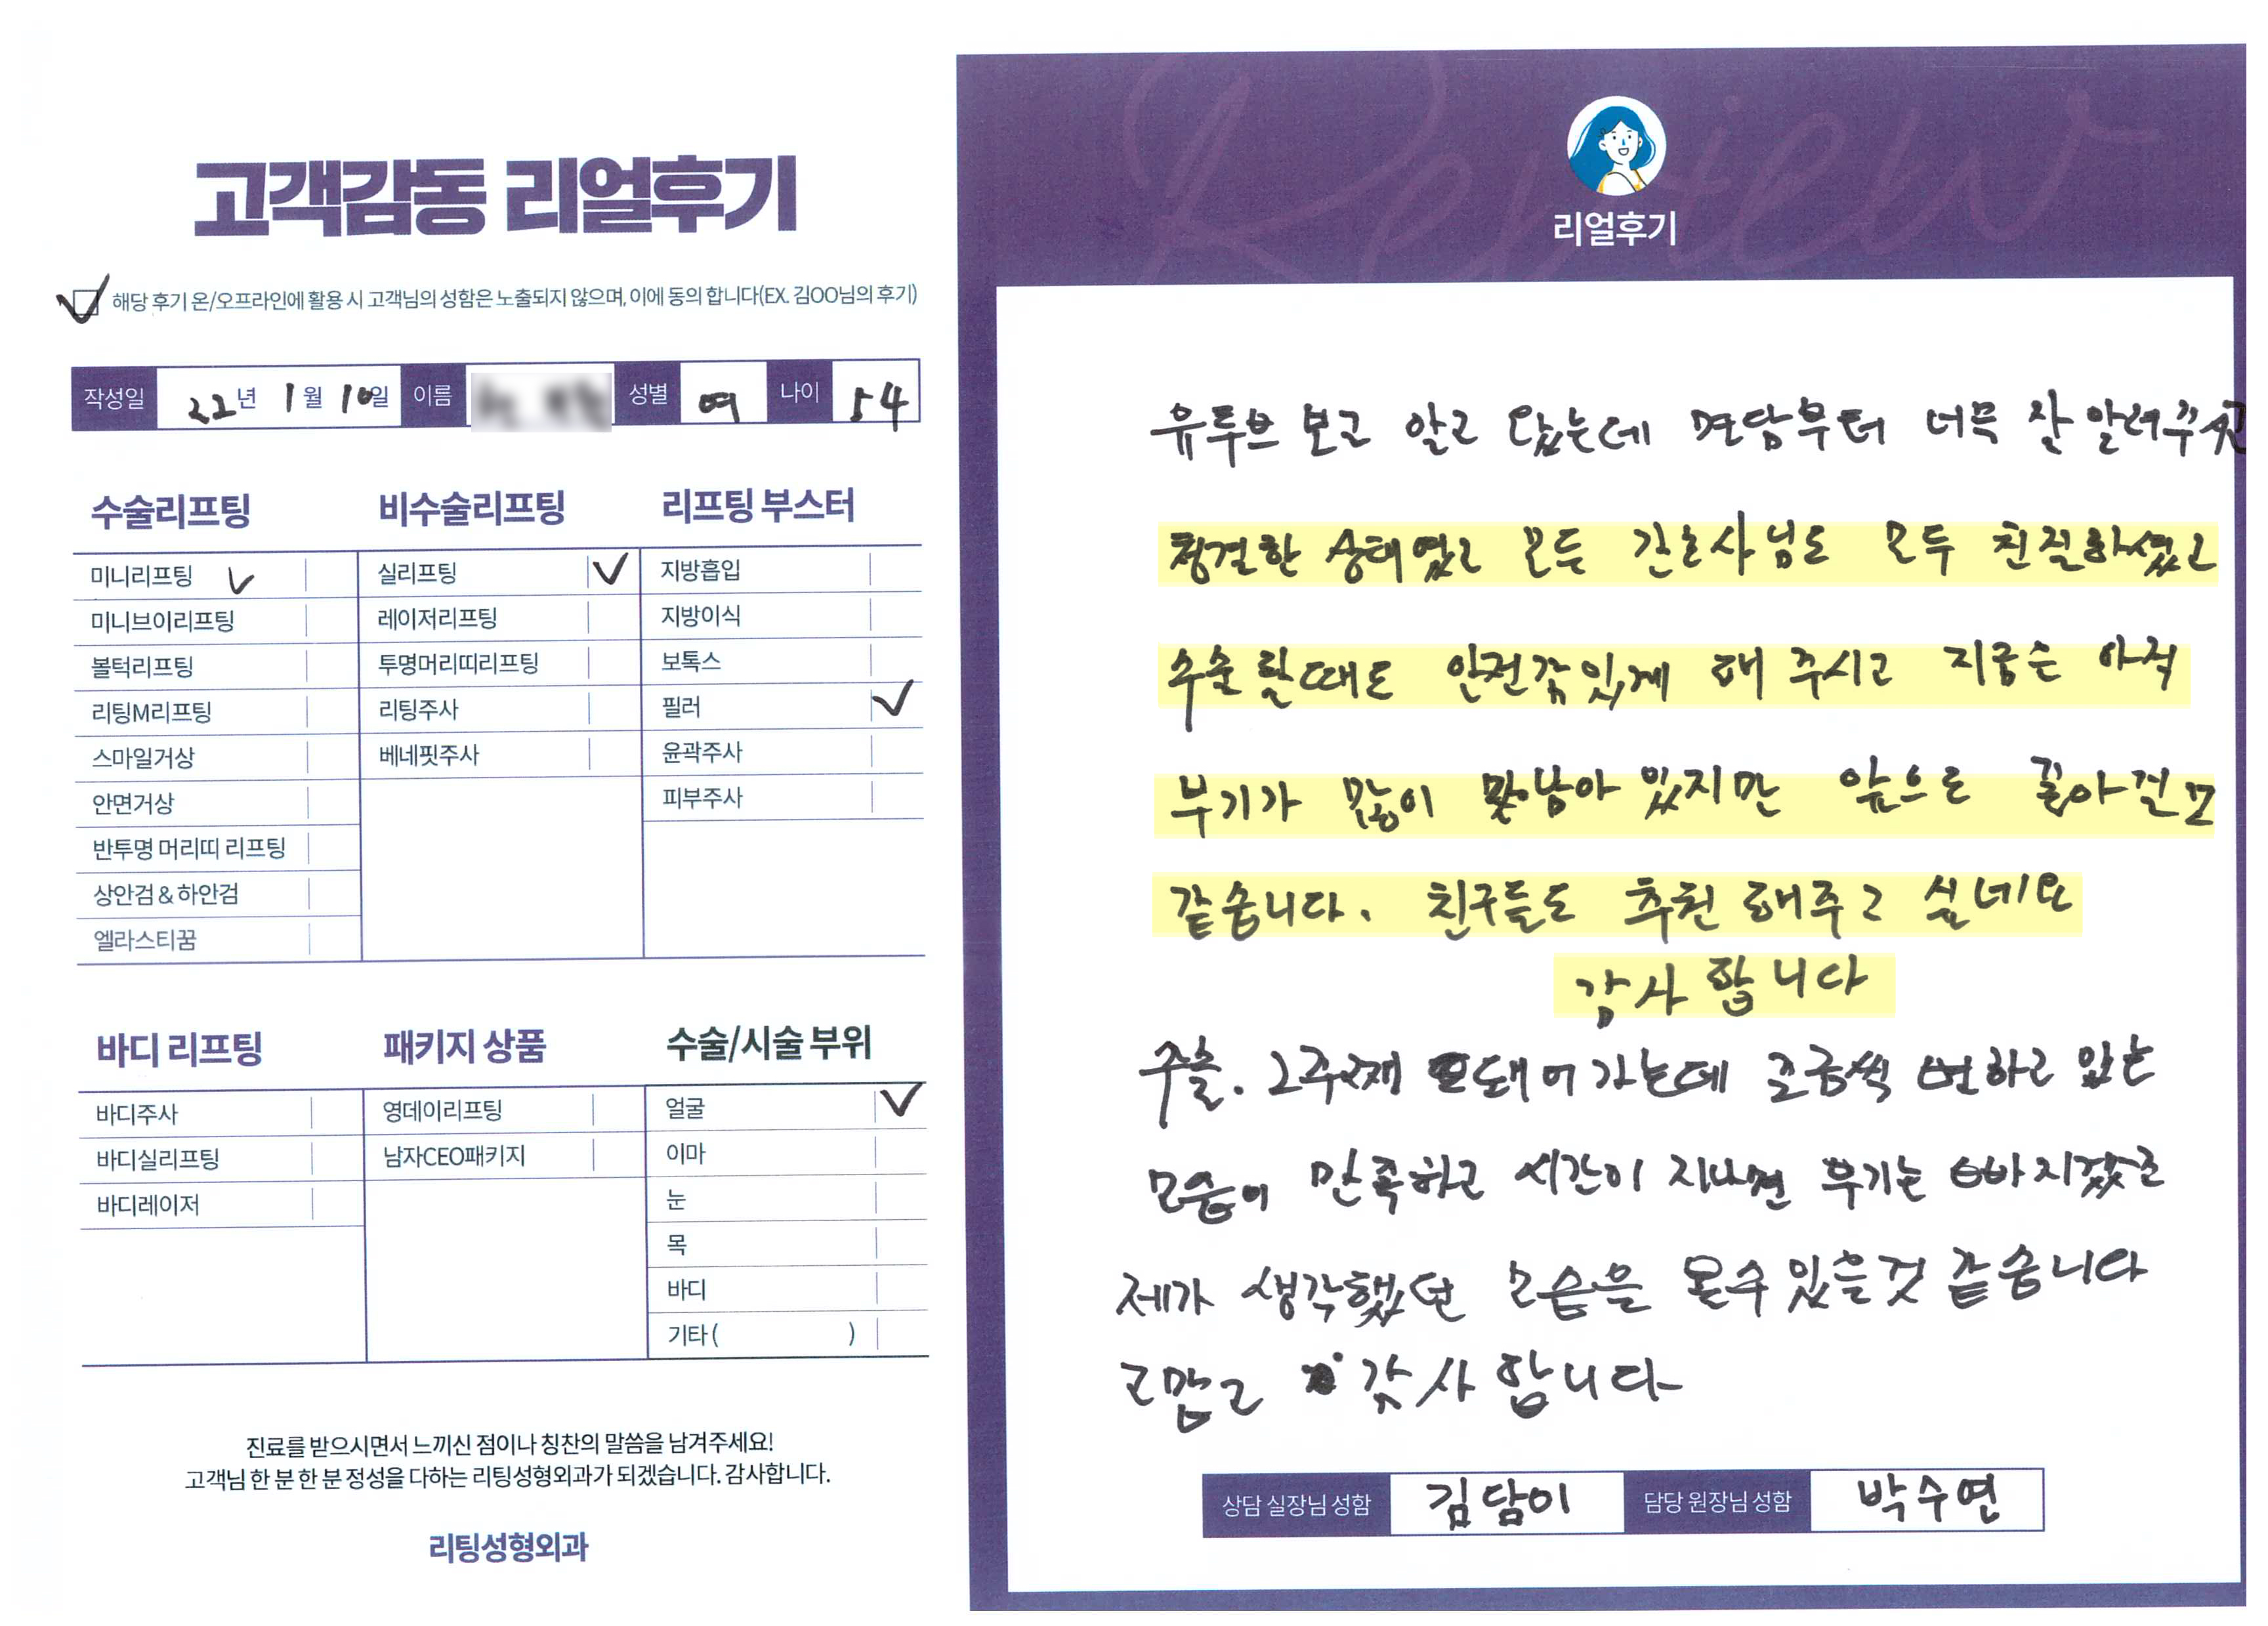 고객감동 리얼후기
해당 후기 온/오프라인에 활용 시 고객님의 성함은 노출되지 않으며, 이에 동의 합니다(EX. 김OO님의 후기)
작성일 22년 1월 10일 이름 성별 여 나이 54
수술리프팅
미니리프팅
미니브이리프팅
볼턱리프팅
리팅M리프팅
스마일거상
안면거상
반투명 머리띠 리프팅
상안검 & 하안검
엘라스티꿈
비수술리프팅
실리프팅
레이저리프팅
투명머리띠리프팅
리팅주사
베네핏주사
리프팅 부스터
지방흡입
지방이식
보톡스
필러
윤곽주사
피부주사
바디 리프팅
바디주사
바디실리프팅
바디레이저
패키지 상품
영데이리프팅
남자CEO패키지
수술/시술 부위
얼굴
이마
눈
목
바디
기타 ( )
진료를 받으시면서 느끼신 점이나 칭찬의 말씀을 남겨주세요!
고객님 한 분 한 분 정성을 다하는 리팅성형외과가 되겠습니다. 감사합니다.
리팅성형외과
Review
리얼후기
유투브 보고 알고 왔는데 면담부터 너무 잘 알려주셨고
청결한 상태였고 모든 간호사님도 모두 친절하셨고
수술 할때도 안전감있게 해 주시고 지금은 아직
부기가 많이 남아 있지만 앞으로 좋아질것
같습니다. 친구들도 추천 해주고 싶네요
감사 합니다
수술. 2주째 돼어 가는데 조금씩 변하고 있는
모습이 만족하고 시간이 지나면 부기는 빠지겠고
제가 생각했던 모습을 올수 있을것 같습니다
고맙고 감사 합니다
상담 실장님 성함 김담이 담당 원장님 성함 박수연